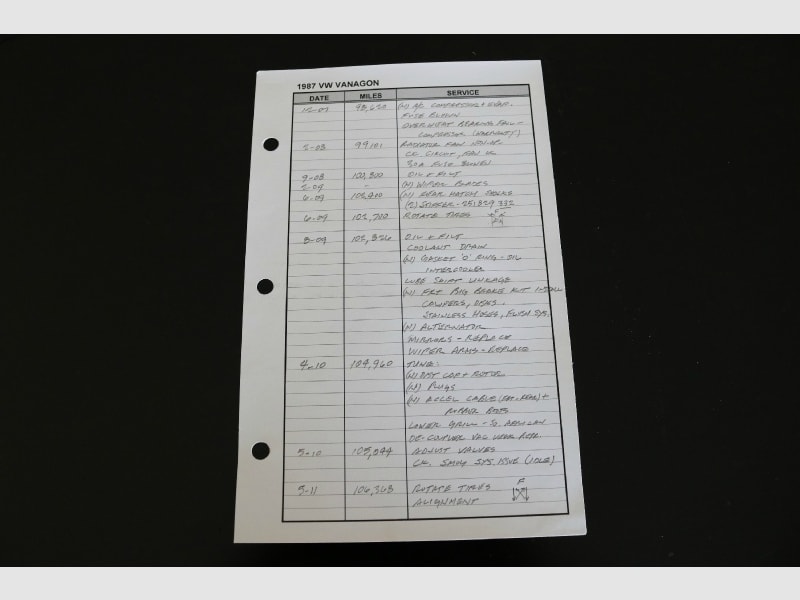 1987 VW VANAGON
DATE MILES SERVICE
12-07 98,620 (N) A/C COMPRESSOR + EVAP.
FUSE BLOWN
BEARING FAIL -
COMPRESSOR (WARRANTY)
2-08 99,101 RADIATOR FAN
CK CIRCUIT, FAN OK
30A FUSE BLOWN
9-08 100,800 OIL + FILT
2-09 - (N) WIPER BLADES
6-09 102,410 (N) REAR HATCH SHOCKS
(2) 251 829 332
6-09 102,700 ROTATE TIRES
8-09 102,826 OIL + FILT
COOLANT DRAIN
(N) GASKET 'O' RING - OIL
INTERCOOLER
LUBE SHIFT LINKAGE
(N) FRT BIG BRAKE KIT INSTALL
CALIPERS, DISKS,
STAINLESS HOSES, FLUSH SYS.
(N) ALTERNATOR
MIRRORS - REPLACE
WIPER ARMS - REPLACE
4-10 104,960 TUNE:
(N) DIST CAP + ROTOR
(N) PLUGS
(N) ACCEL CABLE +
RUBBER BOOTS
LOWER GRILL - SO. AFRICAN
DE-COUPLER VAC HOSE REPR.
5-10 105,844 ADJUST VALVES
CK. SMOG SYS. ISSUE (IDLE)
5-11 106,363 ROTATE TIRES F
ALIGNMENT